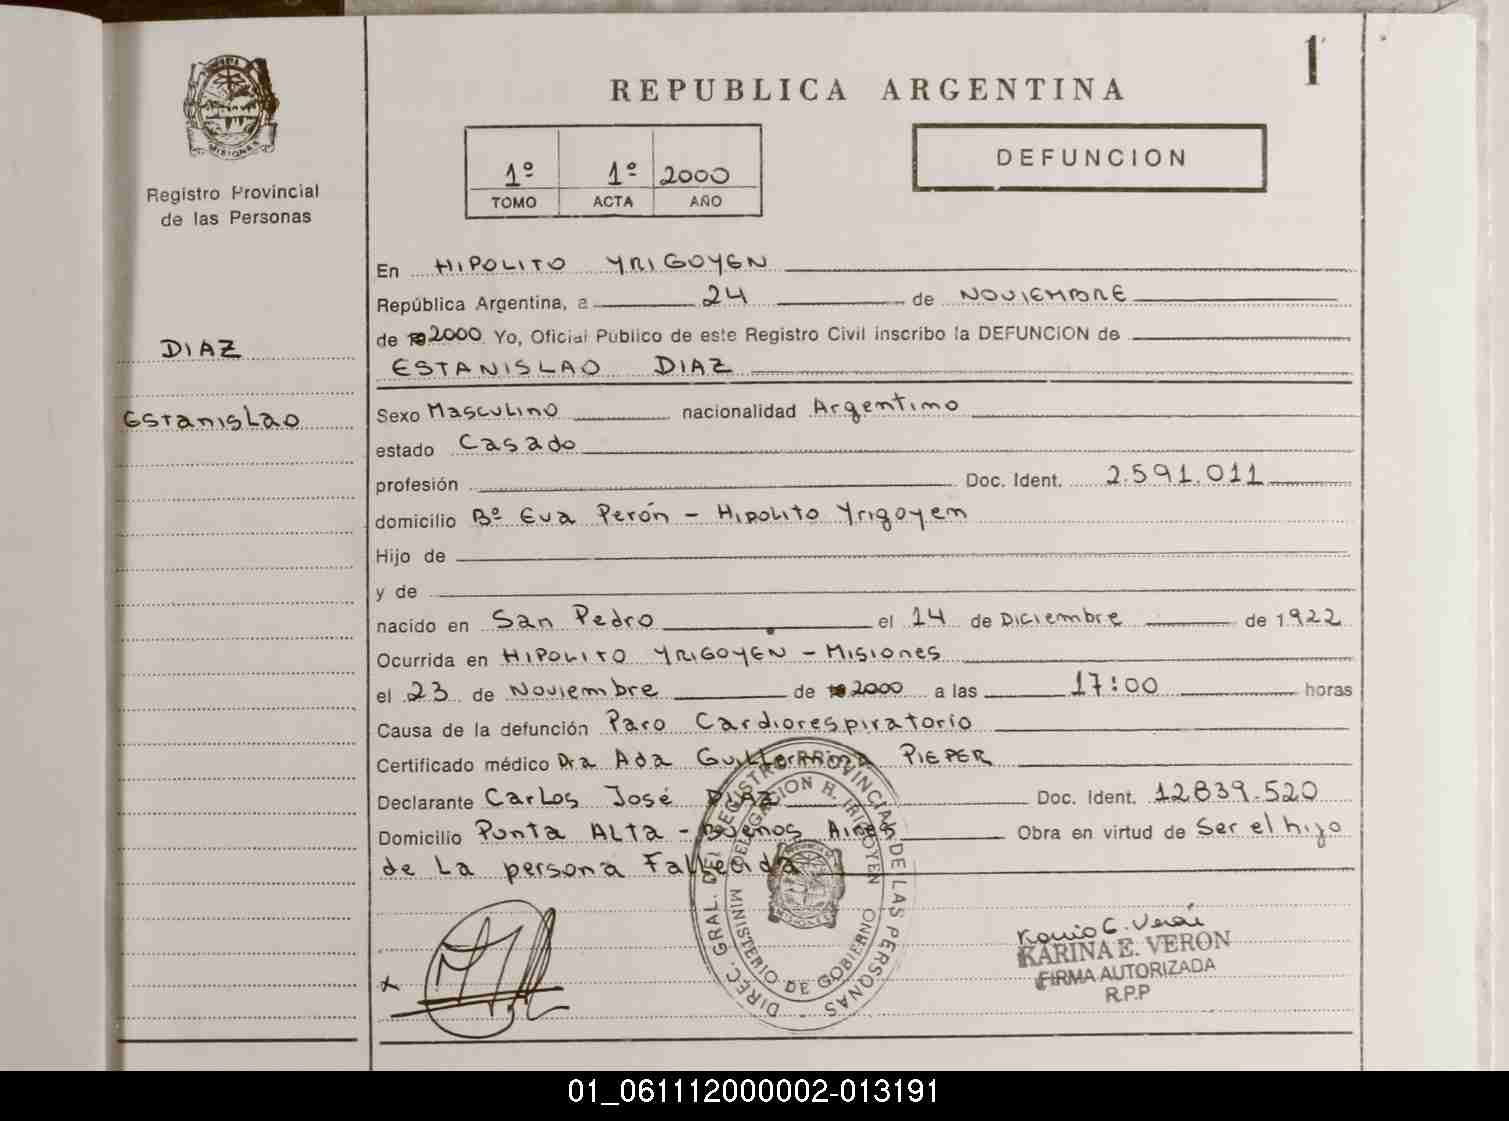 MISIONES
Registro Provincial
de las Personas
DIAZ
EstanisLao
1
REPUBLICA ARGENTINA
1º 1º 2000
TOMO ACTA AÑO
DEFUNCION
En HIPOLITO YRIGOYEN
República Argentina, a 24 de NOVIEMBRE
de 2000. Yo, Oficial Público de este Registro Civil inscribo la DEFUNCION de
ESTANISLAO DIAZ
Sexo Masculino nacionalidad Argentino
estado Casado
profesión Doc. Ident. 2.591.011
domicilio Bº Eva Perón - Hipolito Yrigoyen
Hijo de
y de
nacido en San Pedro el 14 de Diciembre de 1922
Ocurrida en HIPOLITO YRIGOYEN - Misiones
el 23 de Noviembre de 2000 a las 17:00 horas
Causa de la defunción Paro Cardiorespiratorio
Certificado médico Dra Ada Guillermina PIEPER
Declarante Carlos José DIAZ Doc. Ident. 12839.520
Domicilio Punta ALTA - Buenos Aires Obra en virtud de Ser el hijo
de La persona Fallecida
DIREC. GRAL. DEL REGISTRO PROVINCIAL DE LAS PERSONAS
DELEGACION H. IRIGOYEN
MINISTERIO DE GOBIERNO
KARINA E. VERON
FIRMA AUTORIZADA
R.P.P
01_061112000002-013191